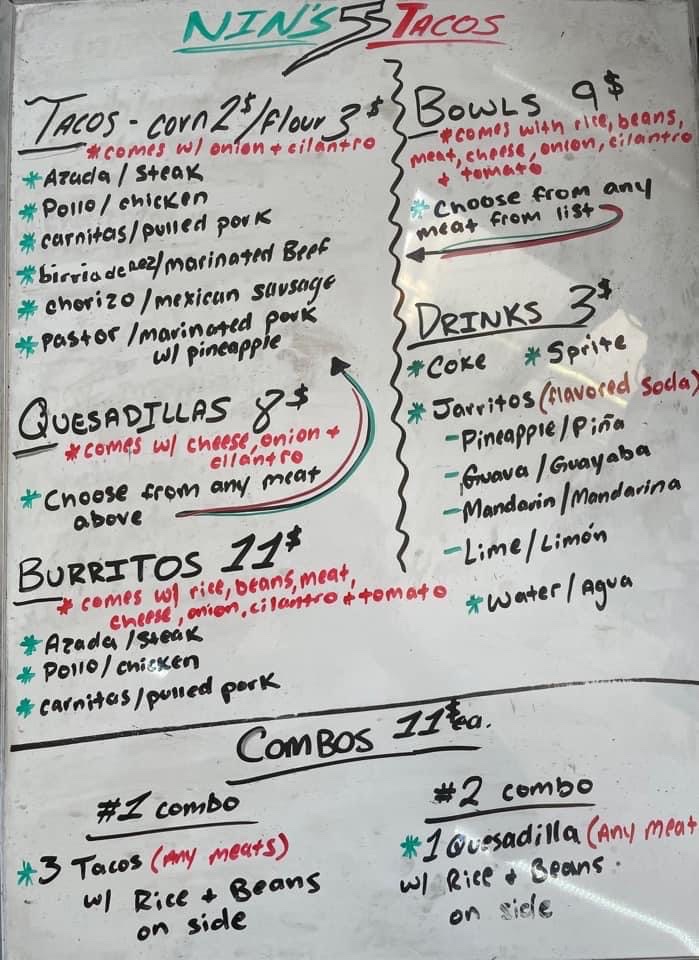 NIN'S 55 TACOS
TACOS - corn 2$/flour 3$
*comes w/ onion + cilantro
*Azada/steak
*Pollo/chicken
*carnitas/pulled pork
*birria de Rez/marinated Beef
*chorizo/mexican sausage
*Pastor/marinated pork
w/ pineapple
QUESADILLAS 8$
*comes w/ cheese, onion +
cilantro
*Choose from any meat
above
BURRITOS 11$
*comes w/ rice, beans, meat,
cheese, onion, cilantro + tomato
*Azada/steak
*Pollo/chicken
*carnitas/pulled pork
BOWLS 9$
*comes with rice, beans,
meat, cheese, onion, cilantro
+ tomato
*Choose from any
meat from list
DRINKS 3$
*Coke *Sprite
*Jarritos (flavored soda)
-Pineapple/Piña
-Guava/Guayaba
-Mandarin/Mandarina
-Lime/Limón
*Water/Agua
COMBOS 11$ea.
#1 combo
*3 Tacos (Any meats)
w/ Rice + Beans
on side
#2 combo
*1 Quesadilla (Any meat
w/ Rice + Beans
on side